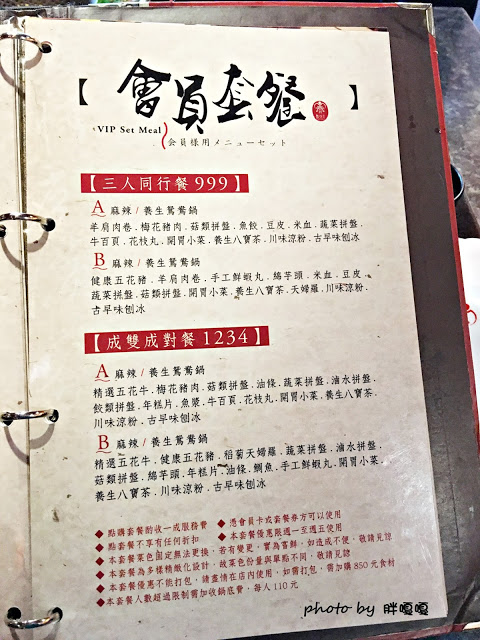 【會員套餐】
VIP Set Meal
会員様用メニューセット
【三人同行餐 999】
A 麻辣 / 養生鴛鴦鍋
羊肩肉卷．梅花豬肉．菇類拼盤．魚餃．豆皮．米血．蔬菜拼盤．
牛百頁．花枝丸．開胃小菜．養生八寶茶．川味涼粉．古早味刨冰
B 麻辣 / 養生鴛鴦鍋
健康五花豬．羊肩肉卷．手工鮮蝦丸．綿芋頭．米血．豆皮．
蔬菜拼盤．菇類拼盤．開胃小菜．養生八寶茶．天婦羅．川味涼粉．
古早味刨冰
【成雙成對餐 1234】
A 麻辣 / 養生鴛鴦鍋
精選五花牛．梅花豬肉．菇類拼盤．油條．蔬菜拼盤．滷水拼盤．
餃類拼盤．年糕片．魚漿．牛百頁．花枝丸．開胃小菜．養生八寶茶．
川味涼粉．古早味刨冰
B 麻辣 / 養生鴛鴦鍋
精選五花牛．健康五花豬．稻荀天婦羅．蔬菜拼盤．滷水拼盤．
菇類拼盤．綿芋頭．年糕片．油條．鯛魚．手工鮮蝦丸．開胃小菜．
養生八寶茶．川味涼粉．古早味刨冰
◆ 點購套餐酌收一成服務費 ◆ 憑會員卡或套餐券方可以使用
◆ 套餐不享有任何折扣 ◆ 本套餐優惠限週一至週五使用
◆ 本套餐菜色固定無法更換，若有變更，實為嘗鮮，如造成不便，敬請見諒
◆ 本套餐為多樣精緻化設計，故菜色份量與單點不同，敬請見諒
◆ 本套餐優惠不能打包，請盡情在店內使用，如需打包，需加購 850 元食材
◆ 本套餐人數超過限制需加收鍋底費，每人 110 元
photo by 胖嘎嘎